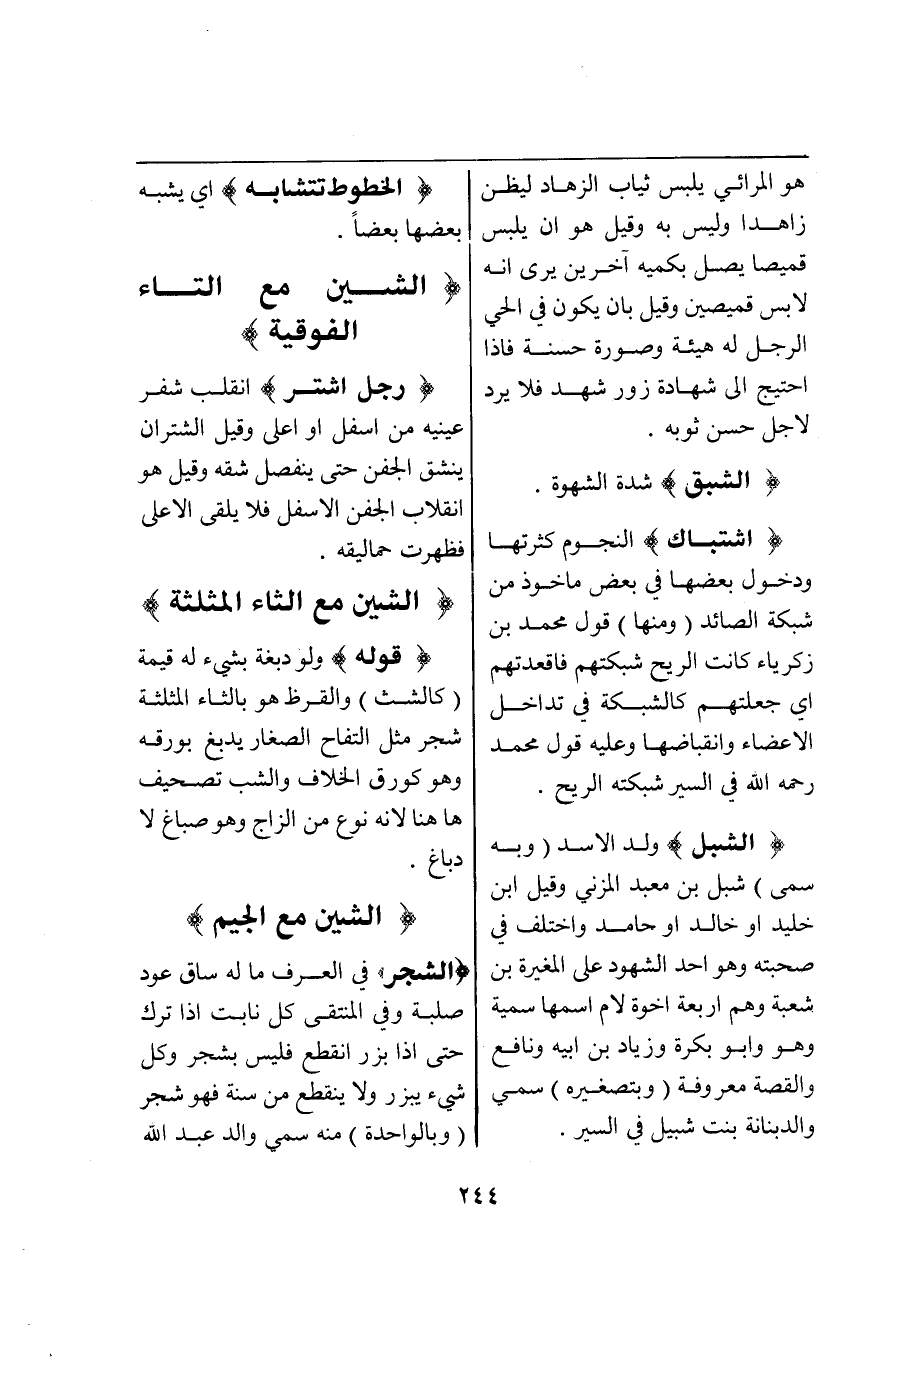 هو المرائي يلبس ثياب الزهاد ليظن
زاهدا وليس به وقيل هو ان يلبس
قميصا يصل بكميه آخرين يرى انه
لابس قميصين وقيل بان يكون في الحي
الرجل له هيئة وصورة حسنة فاذا
احتيج الى شهادة زور شهد فلا يرد
لاجل حسن ثوبه .
﴿ الشبق ﴾ شدة الشهوة .
﴿ اشتباك ﴾ النجوم كثرتها
ودخول بعضها في بعض ماخوذ من
شبكة الصائد ( ومنها ) قول محمد بن
زكرياء كانت الريح شبكتهم فاقعدتهم
اي جعلتهم كالشبكة في تداخل
الاعضاء وانقباضها وعليه قول محمد
رحمه الله في السير شبكته الريح .
﴿ الشبل ﴾ ولد الاسد ( وبه
سمى ) شبل بن معبد المزني وقيل ابن
خليد او خالد او حامد واختلف في
صحبته وهو احد الشهود على المغيرة بن
شعبة وهم اربعة اخوة لام اسمها سمية
وهو وابو بكرة وزياد بن ابيه ونافع
والقصة معروفة ( وبتصغيره ) سمي
والدبنانة بنت شبيل في السير .
﴿ الخطوط تتشابه ﴾ اي يشبه
بعضها بعضاً .
﴿ الشين مع التاء
الفوقية ﴾
﴿ رجل اشتر ﴾ انقلب شفر
عينيه من اسفل او اعلى وقيل الشتران
ينشق الجفن حتى ينفصل شقه وقيل هو
انقلاب الجفن الاسفل فلا يلقى الاعلى
فظهرت حماليقه .
﴿ الشين مع الثاء المثلثة ﴾
﴿ قوله ﴾ ولو دبغة بشيء له قيمة
( كالشث ) والقرظ هو بالثاء المثلثة
شجر مثل التفاح الصغار يدبغ بورقه
وهو كورق الخلاف والشب تصحيف
ها هنا لانه نوع من الزاج وهو صباغ لا
دباغ .
﴿ الشين مع الجيم ﴾
﴿الشجر﴾ في العرف ما له ساق عود
صلبة وفي المنتقى كل نابت اذا ترك
حتى اذا بزر انقطع فليس بشجر وكل
شيء يبزر ولا ينقطع من سنة فهو شجر
( وبالواحدة ) منه سمي والد عبد الله
٢٤٤